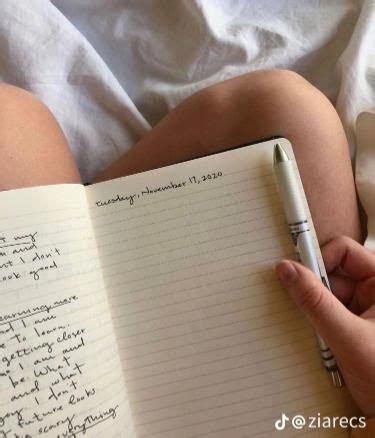 my
and
I don't
look good
learning more
and I am
to learn.
getting closer
I am and
be. What
and what
I don't
future looks
scary
everything
tuesday, November 17, 2020
@ziarecs